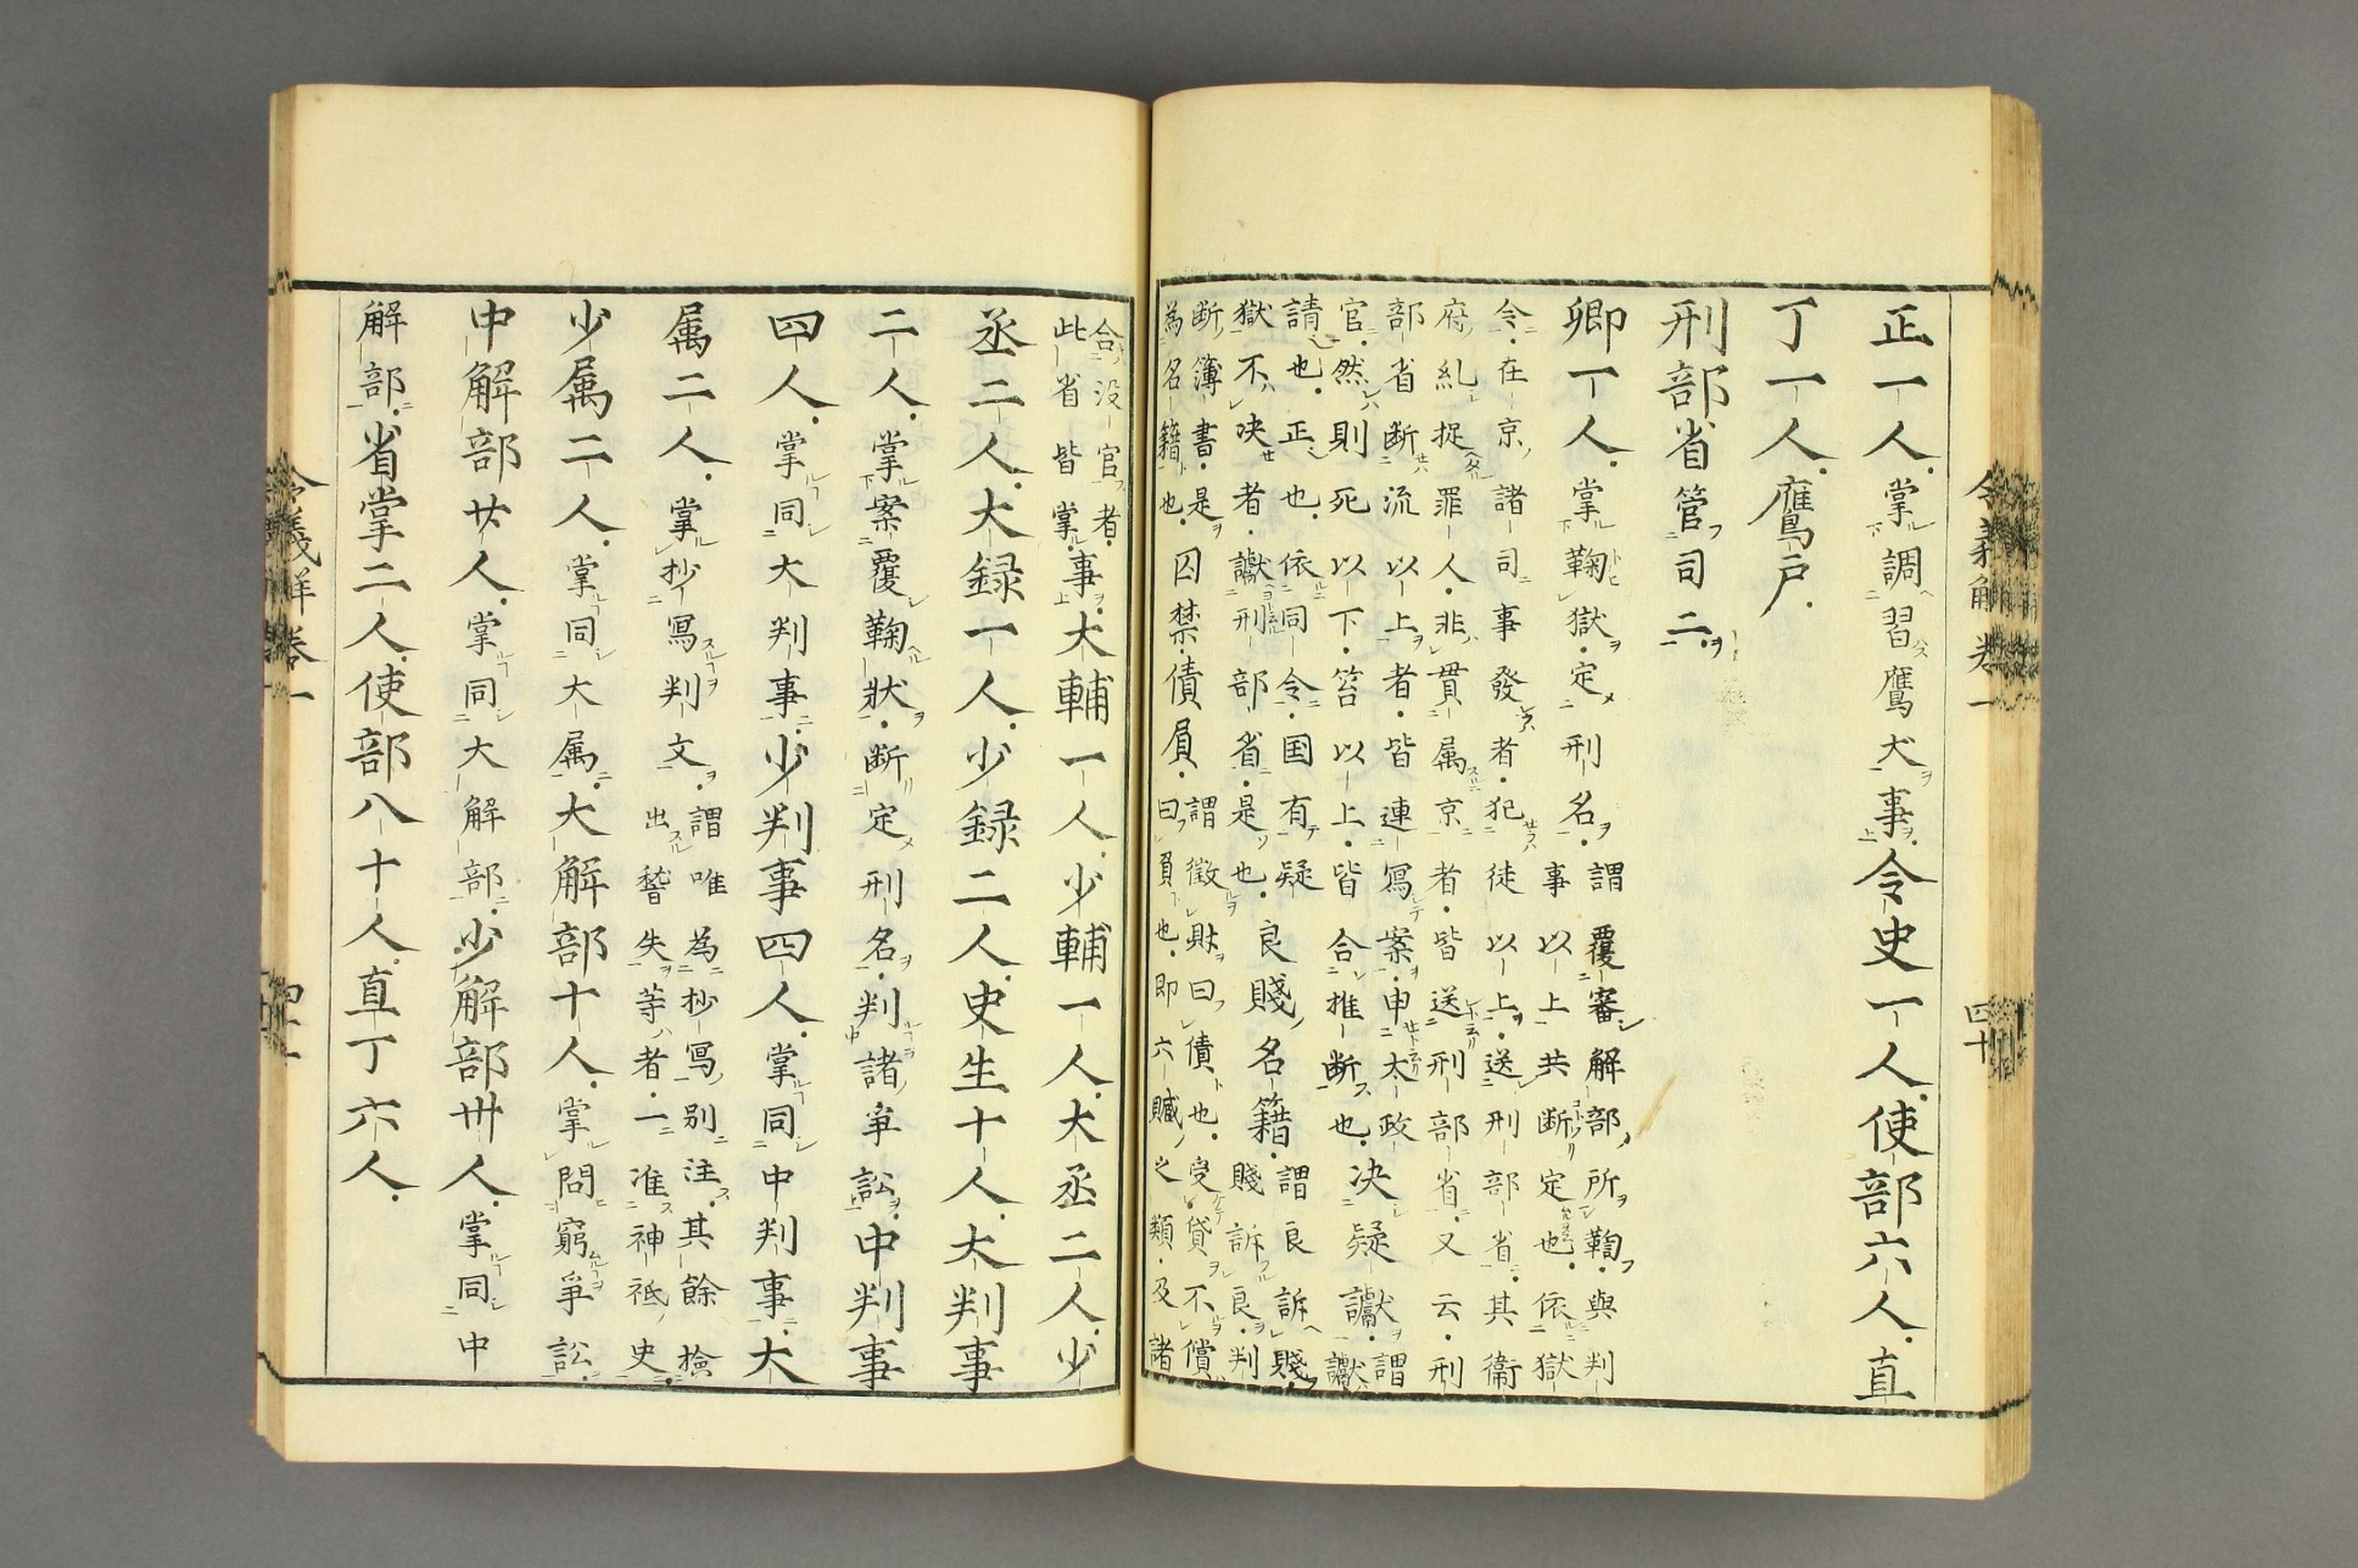 令義解卷一　四十
正一人。掌調習鷹犬事。令史一人。使部六人。直
丁一人。鷹戸。
刑部省管司二
卿一人。掌鞫獄。定刑名。謂覆審解部所鞫。與判
事以上共断定也。依獄
令。在京諸司事發者。犯徒以上。送刑部省。其衛
府糺捉罪人。非貫属京者。皆送刑部省。又云。刑
部省断流以上者。皆連冩案。申太政
官。然則死以下。笞以上。皆合推断也。决疑讞。謂讞
請也。正也。依同令。国有疑
獄不决者。讞刑部省。是也。良賤名籍。謂良訴賤。
賤訴良。判
断簿書。是
為名籍也。囚禁。債負。謂徴財曰債也。受貸不償
曰負也。即六贓之類。及諸
合没官者。
此省皆掌。事。大輔一人。少輔一人。大丞二人。少
丞二人。大録一人。少録二人。史生十人。大判事
二人。掌案覆鞫狀。断定刑名。判諸爭訟。中判事
四人。掌同大判事。少判事四人。掌同中判事。大
属二人。掌抄冩判文。謂唯為抄冩別注。其餘檢
出稽失等者。一准神祇史。
少属二人。掌同大属。大解部十人。掌問窮爭訟。
中解部廿人。掌同大解部。少解部卅人。掌同中
解部。省掌二人。使部八十人。直丁六人。
令義解卷一